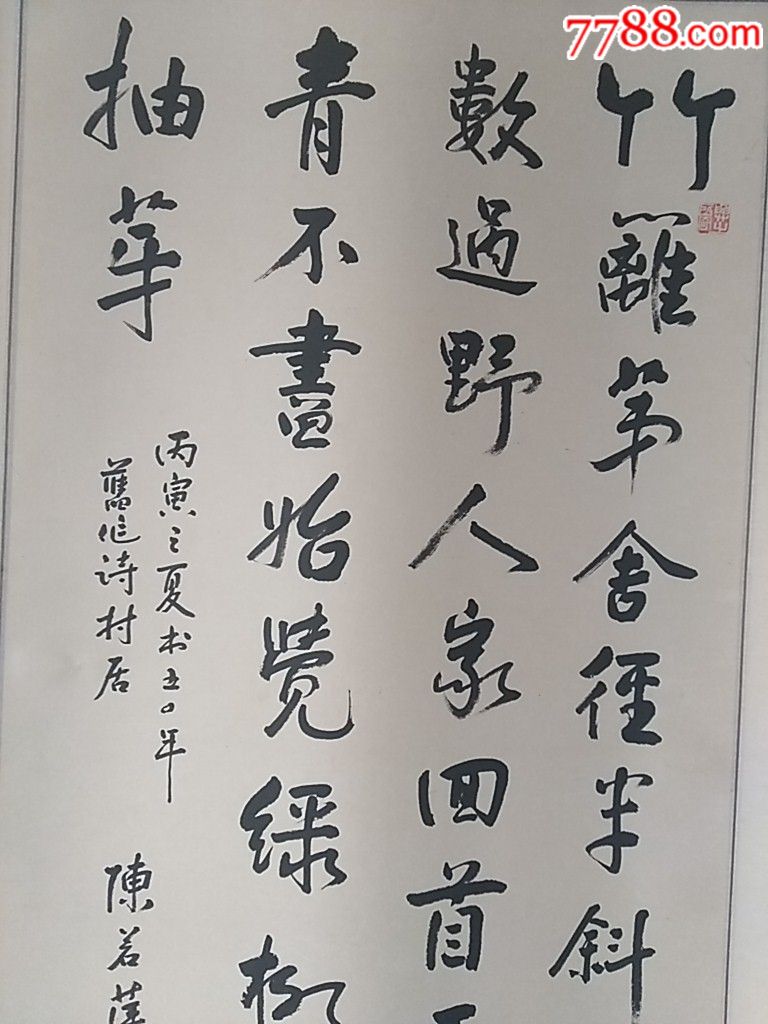 7788.com
竹籬茅舍徑半斜
數過野人家回首
青不畫始覺綠柳
抽芽
丙寅之夏书五〇年
舊作诗村居
陳若